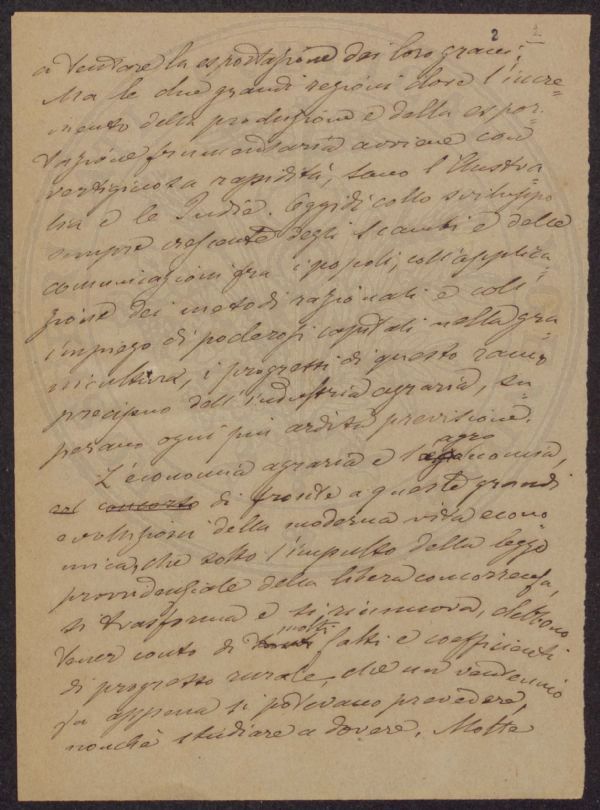 2 2
a tentare la esportazione dei loro grani;
Ma le due grandi regioni dove l'incre=
mento della produzione e della espor=
tazione frumentaria avviene con
vertiginosa rapidità, sono l'Austra=
lia e le Indie. Oggidì collo sviluppo
sempre crescente degli scambi e delle
comunicazioni fra i popoli, coll'applica=
zione dei metodi razionali e coll'
impiego di poderosi capitali nella gra=
nicultura, i progressi di questo ramo
precipuo dell'industria agraria, su=
perano ogni più ardita previsione.
L'economia agraria e l'agronomia,
di fronte a queste grandi
evoluzioni della moderna vita econo
mica, che sotto l'impulso della legge
provvidenziale della libera concorrenza,
si trasforma e si rinnova, debbono
tener conto di molti fatti e coefficienti
di progresso rurale, che un ventennio
fa appena si potevano prevedere,
nonchè studiare a dovere. Molte